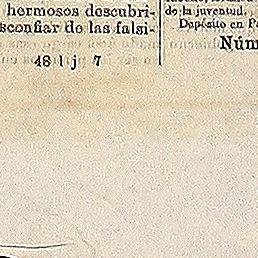 hermosos descubri-
sconfiar de las falsi-
48 l j 7
de la juventud.
Depósito en P
Núm